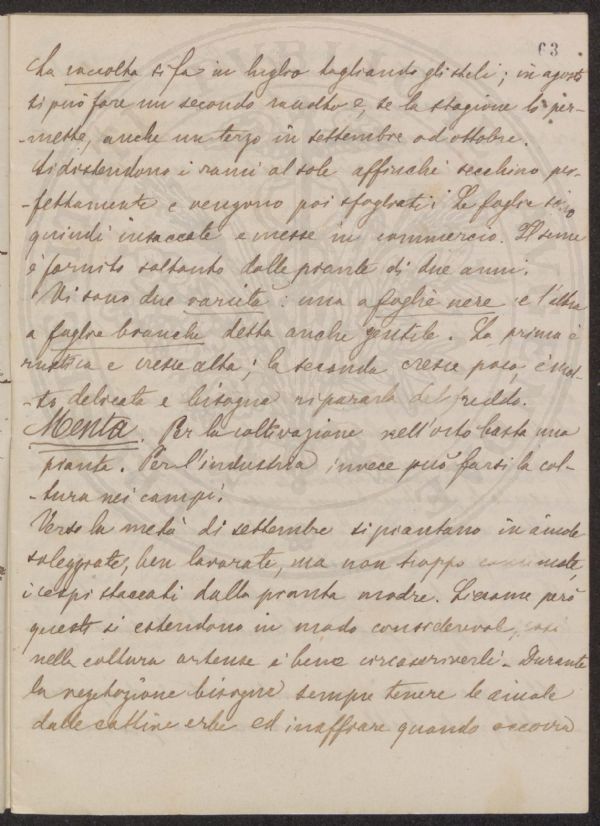 63
La raccolta si fa in luglio tagliando gli steli; in agosto
si può fare un secondo raccolto e, se la stagione lo per-
-mette, anche un terzo in settembre od ottobre.
Si distendono i rami al sole affinchè secchino per-
-fettamente e vengono poi sfogliati. Le foglie sono
quindi insaccate e messe in commercio. Il seme
è fornito soltanto dalle piante di due anni.
Vi sono due varietà: una a foglie nere e l'altra
a foglie bianche detta anche gentile. La prima è
rustica e cresce alta; la seconda cresce poco, è mol-
-to delicata e bisogna ripararla dal freddo.
Menta. Per la coltivazione nell'orto basta una
pianta. Per l'industria invece può farsi la col-
-tura nei campi.
Verso la metà di settembre si piantano in aiuole
soleggiate, ben lavorate, ma non troppo concimate,
i cespi staccati dalla pianta madre. Siccome però
questi si estendono in modo considerevole, così
nella coltura ortense è bene circoscriverli. Durante
la vegetazione bisogna sempre tenere le aiuole
dalle cattive erbe ed inaffiare quando occorra